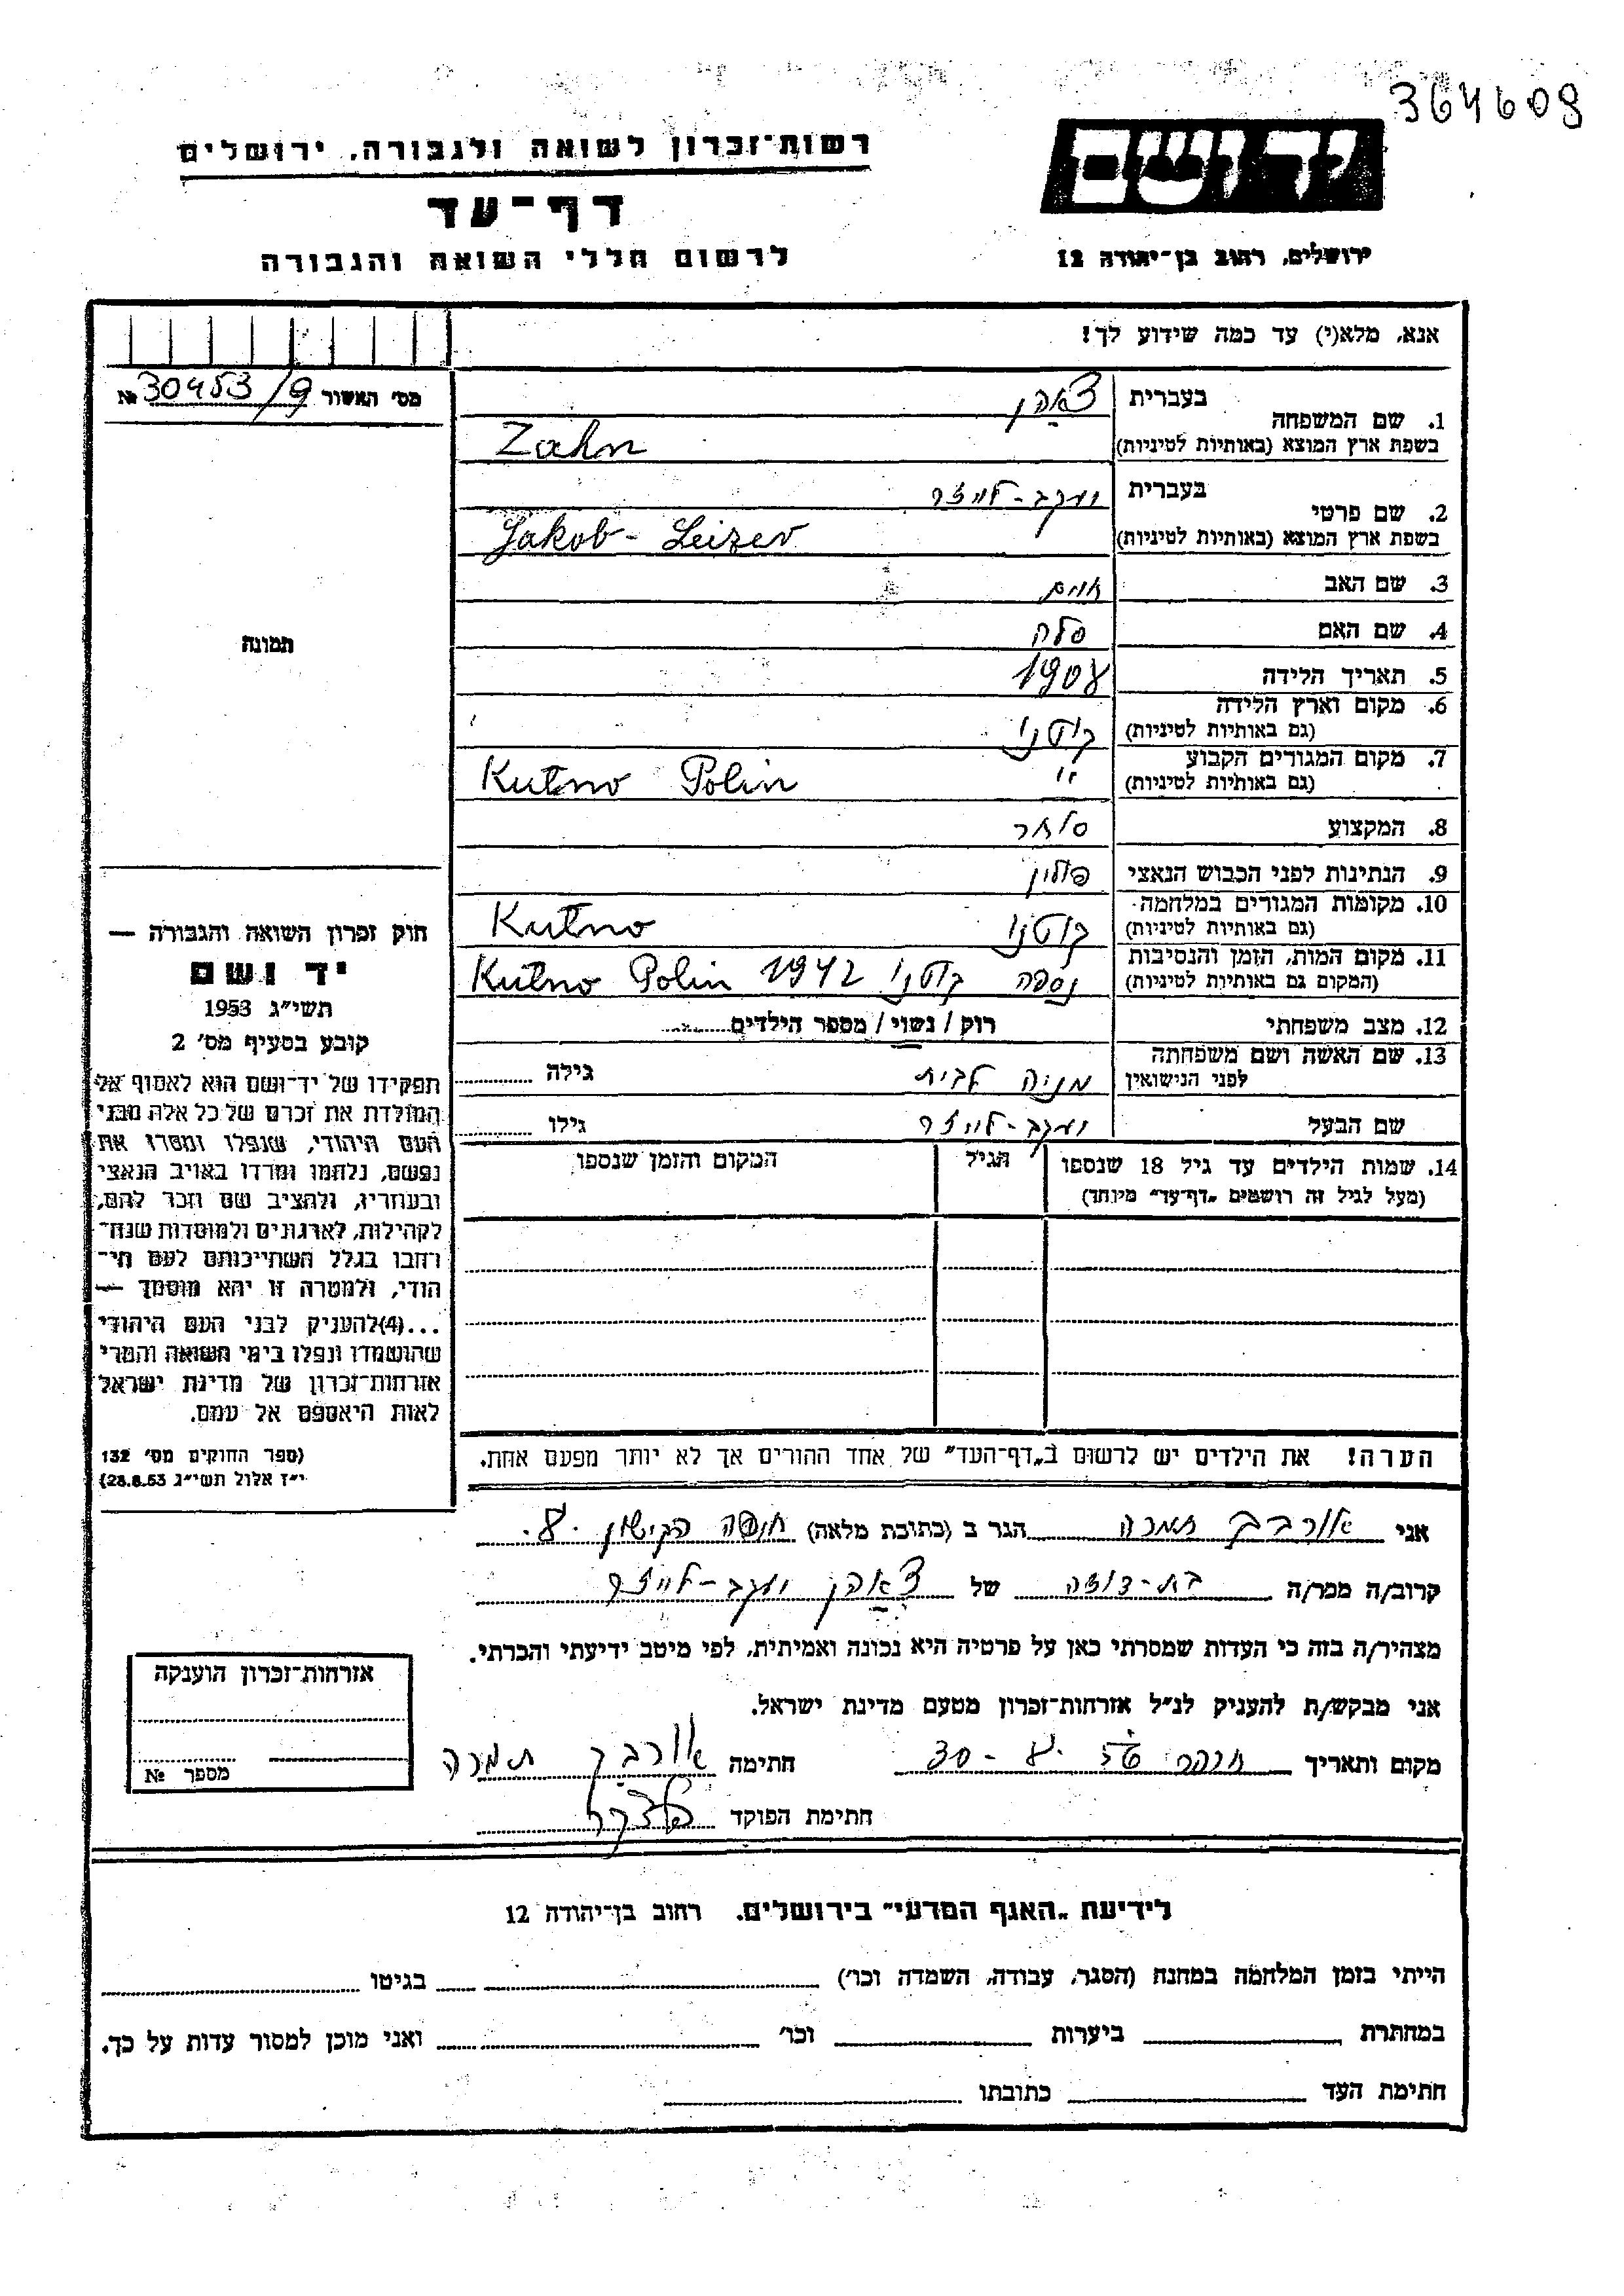 364609
רשות־זכרון לשואה ולגבורה, ירושלים
ידושם
דף־עד
ירושלים, רחוב בן־יהודה 12
לרשום חללי השואה והגבורה
אנא, מלא(י) עד כמה שידוע לך!
מס' האשור № 30453/9
1. שם המשפחה
בעברית צאהן
בשפת ארץ המוצא (באותיות לטיניות) Zahn
2. שם פרטי
בעברית יעקב-לייזר
בשפת ארץ המוצא (באותיות לטיניות) Jakob-Leizer
3. שם האב
4. שם האם
5. תאריך הלידה 1908
6. מקום וארץ הלידה
(גם באותיות לטיניות) קוטנו
7. מקום המגורים הקבוע
(גם באותיות לטיניות) " Kutno Polin
8. המקצוע סוחר
9. הנתינות לפני הכבוש הנאצי פולין
10. מקומות המגורים במלחמה
(גם באותיות לטיניות) קוטנו Kutno
11. מקום המות, הזמן והנסיבות
(המקום גם באותיות לטיניות) נספה קוטנו 1942 Kutno Polin
12. מצב משפחתי רוק / נשוי / מספר הילדים
13. שם האשה ושם משפחתה
לפני הנישואין מניה לבית גילה
שם הבעל יעקב-לייזר גילו
14. שמות הילדים עד גיל 18 שנספו הגיל המקום והזמן שנספו
(מעל לגיל זה רושמים „דף־עד" מיוחד)
תמונה
חוק זכרון השואה והגבורה —
יד ושם
תשי"ג 1953
קובע בסעיף מס' 2
תפקידו של יד־ושם הוא לאסוף אל
המולדת את זכרם של כל אלה מבני
העם היהודי, שנפלו ומסרו את
נפשם, נלחמו ומרדו באויב הנאצי
ובעוזריו, ולהציב שם וזכר להם,
לקהילות, לארגונים ולמוסדות שנח־
רחבו בגלל השתייכותם לעם הי־
הודי, ולמטרה זו יהא מוסמך —
...(4)להעניק לבני העם היהודי
שהושמדו ונפלו בימי השואה והמרי
אזרחות־זכרון של מדינת ישראל
לאות היאספם אל עמם.
(ספר החוקים מס' 132
י"ז אלול תשי"ג 28.8.53)
הערה! את הילדים יש לרשום ב„דף־העד" של אחד ההורים אך לא יותר מפעם אחת.
אני אורבך תמרה הגר ב (כתובת מלאה) חיפה הקישון 8.
קרוב/ה מכר/ה בת-דודה של צאהן יעקב-לייזר
מצהיר/ה בזה כי העדות שמסרתי כאן על פרטיה היא נכונה ואמיתית, לפי מיטב ידיעתי והכרתי.
אני מבקש/ת להעניק לנ"ל אזרחות־זכרון מטעם מדינת ישראל.
מקום ותאריך חתימה אורבך תמרה
חתימת הפוקד
אזרחות־זכרון הוענקה
מספר №
לידיעת „האגף המדעי" בירושלים, רחוב בן־יהודה 12
הייתי בזמן המלחמה במחנה (הסגר, עבודה, השמדה וכו') בגיטו
במחתרת ביערות וכו' ואני מוכן למסור עדות על כך.
חתימת העד כתובתו